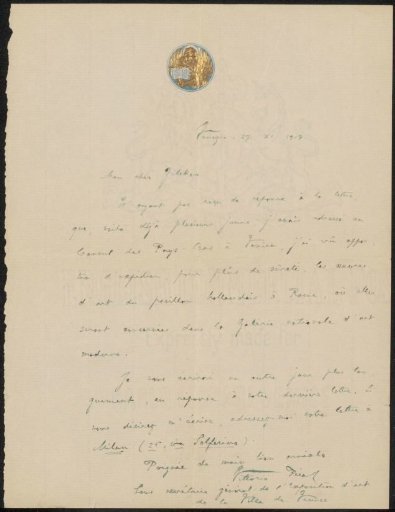 Venezia, 27. XI. 1917
Mon cher Pilchen
N'ayant pas reçu de réponse à la lettre
que, voilà déjà plusieurs jours, j'avais adressé au
Consul des Pays-Bas à Venise, j'ai cru oppor-
tun d'expédier pour plus de sûreté les œuvres
d'art du pavillon hollandais à Rome, où elles
seront conservées dans la Galerie nationale d'art
moderne.
Je vous écrirai un autre jour plus lon-
guement, en réponse à votre dernière lettre. Si
vous désirez m'écrire, adressez-moi votre lettre à
Milan (25, via Solferino)
Poignée de main bien amicale
Vittorio Pica
Sous secrétaire général de l'Exposition d'art
de la Ville de Venise